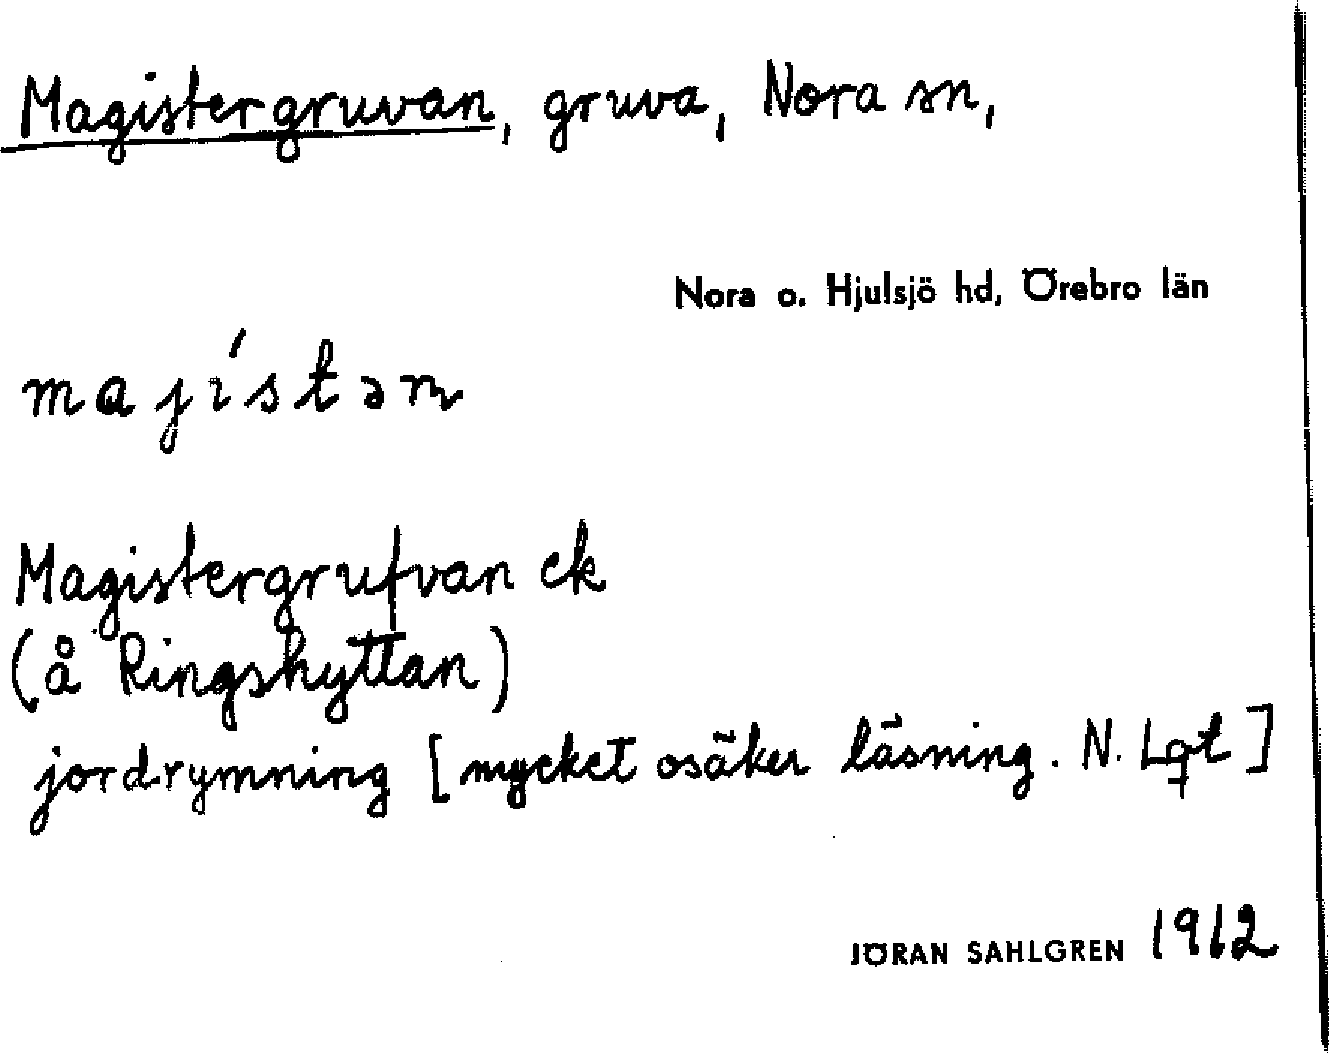 Magistergruvan, gruva, Nora sn,
Nora o. Hjulsjö hd, Örebro län
majístən
Magistergrufvan ek
(å Ringshyttan)
jordrymning [mycket osäker läsning. N. Lqt]
JÖRAN SAHLGREN 1912